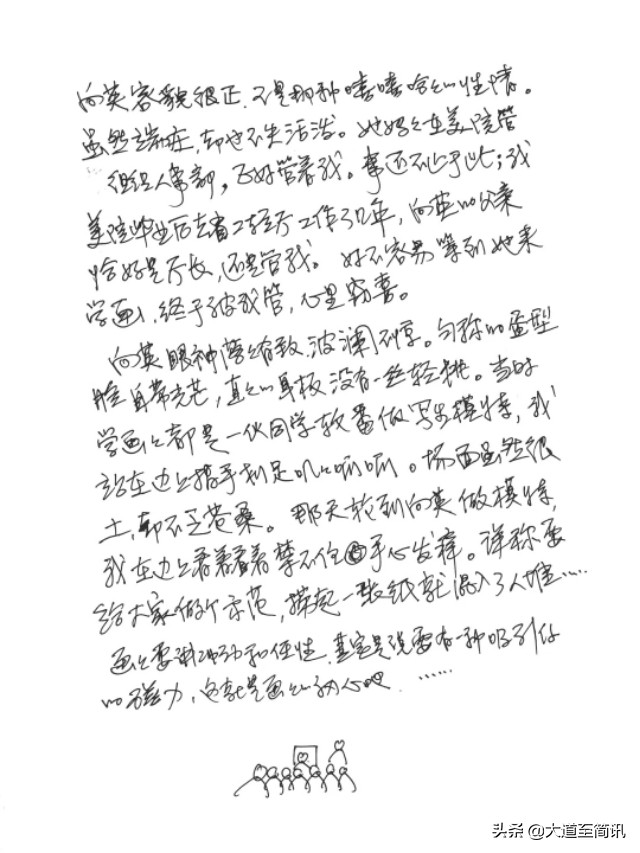 向英容貌很正,不是那种嘻嘻哈哈的性情。
虽然端庄,却也不失活泼。她妈妈在美院管
组织人事部,正好管着我。事还不止于此;我
美院毕业后去省二轻厅工作了几年,向英的父亲
恰好是厅长,还是管我。好不容易等到她来
学画,终于被我管,心里窃喜。
向英眼神错落有致,波澜不惊。匀称的蛋型
脸自带光芒,直直的身板没有一丝轻挑。当时
学画画都是一伙同学轮番做写生模特,我
站在边上指手划足叽叽呱呱。场面虽然很
土,却不乏苍桑。那天轮到向英做模特,
我在边上看着看着禁不住手心发痒。详称要
给大家做个示范,操起一张纸就混入了人堆……
画画要讲冲动和任性,其实是说要有一种吸引你
的磁力,这就是画画的初心吧……
头条 @大道至简讯